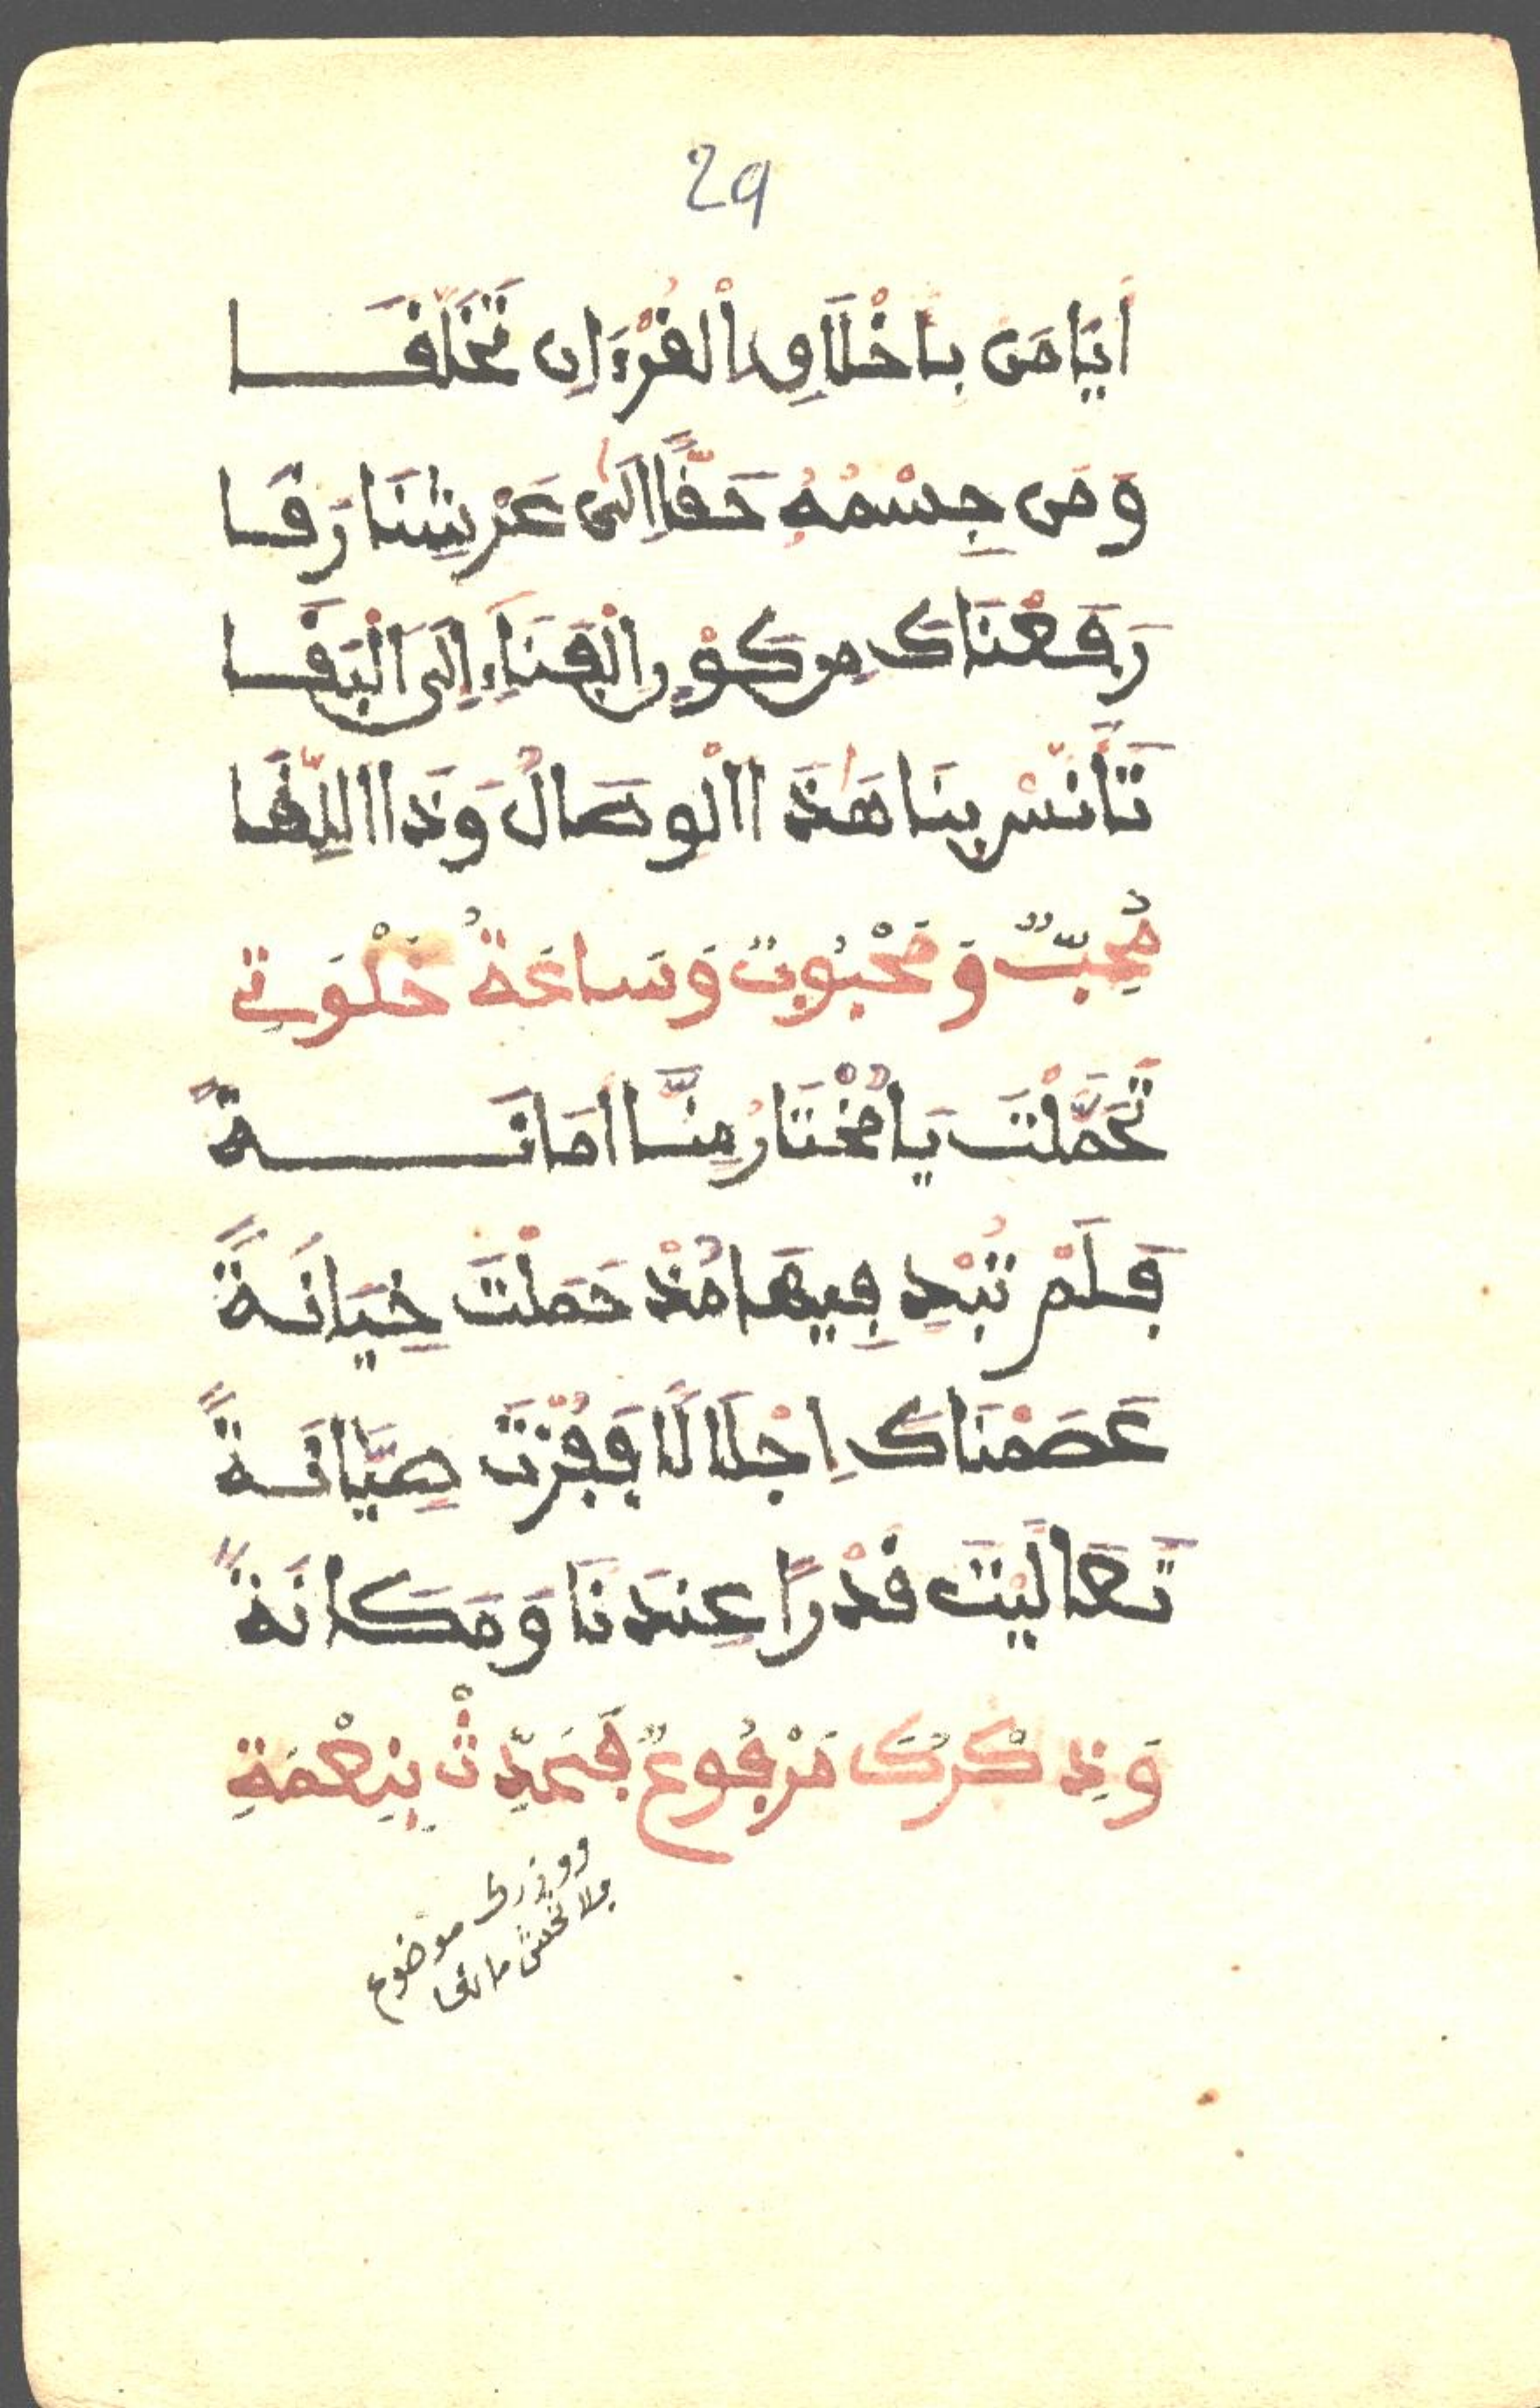 29
أَيَا مَن بِأَخْلَاقِ الْقُرْءَانِ تَخَلَّقَا
وَمَن جِسْمُهُ حَقًّا إِلَى عَرْشِنَا رَقَا
رَفَعْنَاكَ مِن كَوْنِ الْفَنَاءِ إِلَى الْبَقَا
تَأَنَّسْ بِنَا هَذَا الْوِصَالُ وَذَا اللِّقَا
مُحِبٌّ وَمَحْبُوبٌ وَسَاعَةُ خَلْوَتِي
تَحَمَّلْتَ يَا مُخْتَارُ مِنَّا أَمَانَةً
فَلَمْ تُبْدِ فِيهَا مُذْ حَمَلْتَ خِيَانَةً
عَصَمْنَاكَ إِجْلَالًا فَفُزْتَ صِيَانَةً
تَعَالَيْتَ قَدْرًا عِندَنَا وَمَكَانَةً
وَذِكْرُكَ مَرْفُوعٌ فَحَدِّثْ بِنِعْمَةِ
ووزرك موضوع
فلا تخش ما لقا